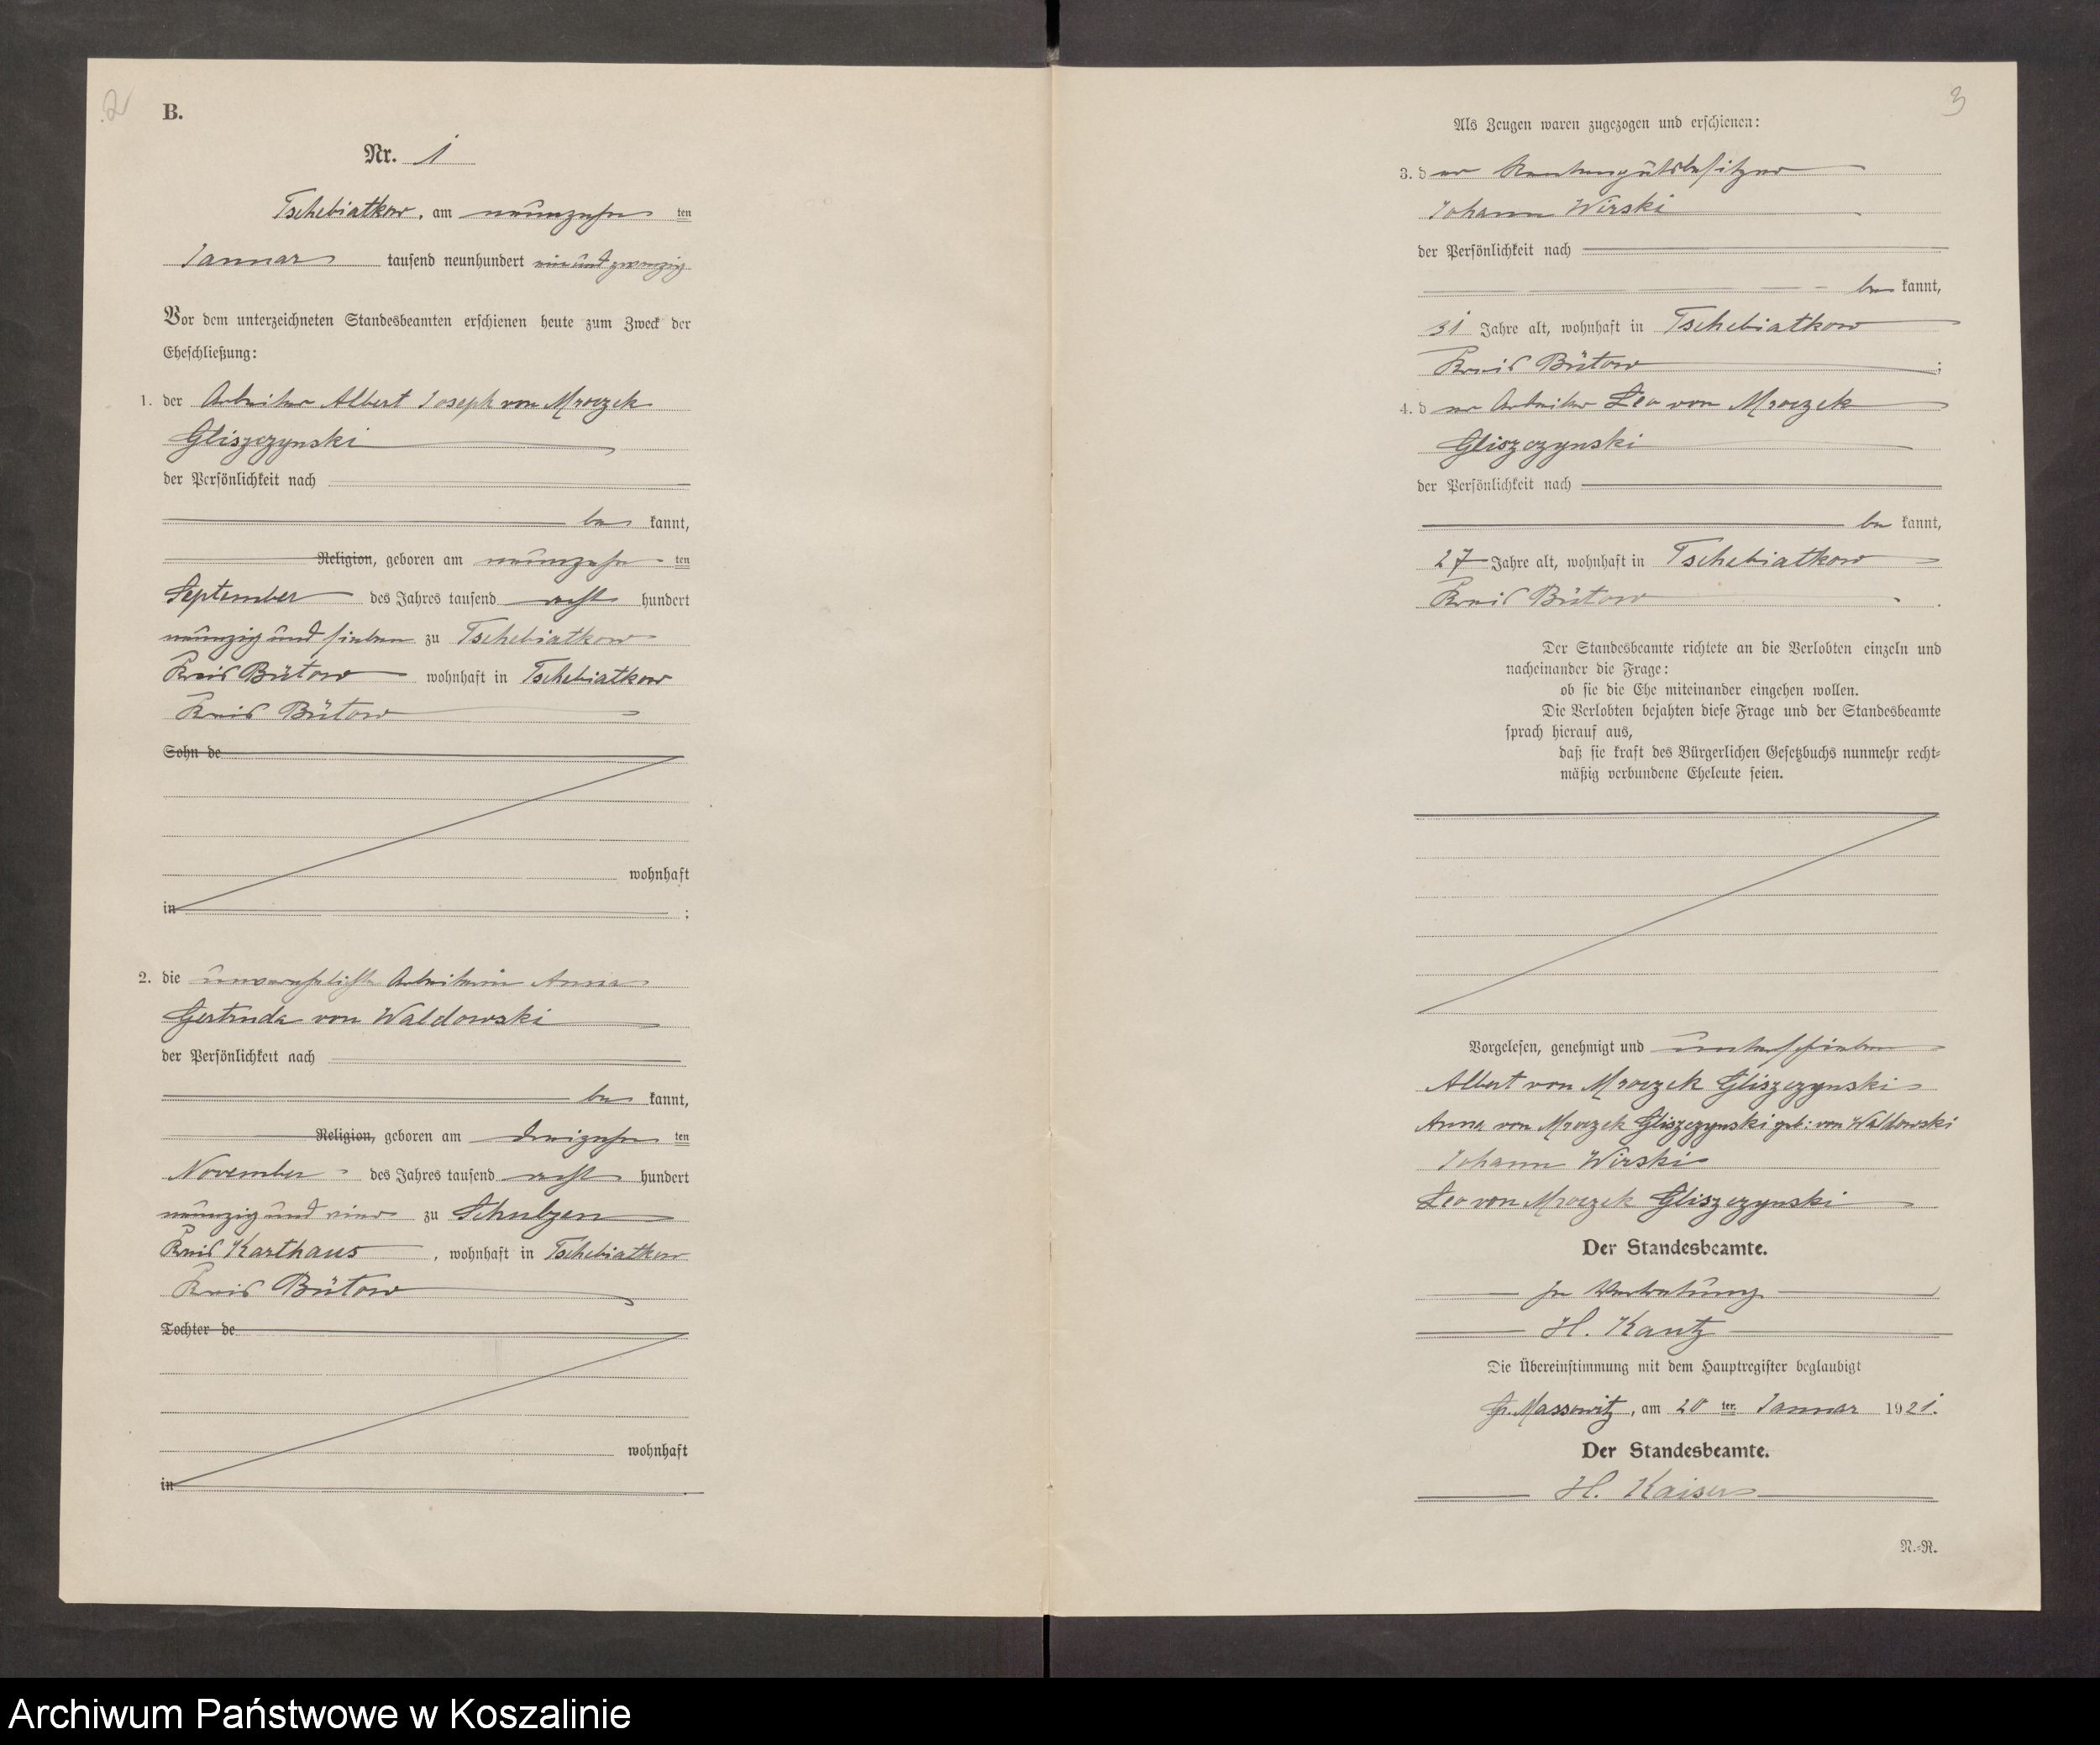 2
B.
Nr. 1
Tschebiatkow, am neunzehn ten
Januar tausend neunhundert ein und zwanzig
Vor dem unterzeichneten Standesbeamten erschienen heute zum Zweck der
Eheschließung:
1. der Arbeiter Albert Joseph von Mroczek
Gliszczynski
der Persönlichkeit nach
be kannt,
Religion, geboren am neunzehn ten
September des Jahres tausend acht hundert
neunzig und sieben zu Tschebiatkow
Kreis Bütow wohnhaft in Tschebiatkow
Kreis Bütow
Sohn de
wohnhaft
in ;
2. die unverehelichte Arbeiterin Anna
Gertruda von Waldowski
der Persönlichkeit nach
be kannt,
Religion, geboren am dreizehn ten
November des Jahres tausend acht hundert
neunzig und vier zu Schulzen
Kreis Karthaus, wohnhaft in Tschebiatkow
Kreis Bütow
Tochter de
wohnhaft
in
3
Als Zeugen waren zugezogen und erschienen:
3. der Rentengutsbesitzer
Johann Wirski
der Persönlichkeit nach
be kannt,
31 Jahre alt, wohnhaft in Tschebiatkow
Kreis Bütow ;
4. der Arbeiter Leo von Mroczek
Gliszczynski
der Persönlichkeit nach
be kannt,
27 Jahre alt, wohnhaft in Tschebiatkow
Kreis Bütow .
Der Standesbeamte richtete an die Verlobten einzeln und
nacheinander die Frage:
ob sie die Ehe miteinander eingehen wollen.
Die Verlobten bejahten diese Frage und der Standesbeamte
sprach hierauf aus,
daß sie kraft des Bürgerlichen Gesetzbuchs nunmehr recht-
mäßig verbundene Eheleute seien.
Vorgelesen, genehmigt und unterschrieben
Albert von Mroczek Gliszczynski
Anna von Mroczek Gliszczynski geb: von Waldowski
Johann Wirski
Leo von Mroczek Gliszczynski
Der Standesbeamte.
In Vertretung
H. Kautz
Die Übereinstimmung mit dem Hauptregister beglaubigt
Gr. Massowitz, am 20 ten Januar 1921.
Der Standesbeamte.
H. Kaiser
N.-R.
Archiwum Państwowe w Koszalinie